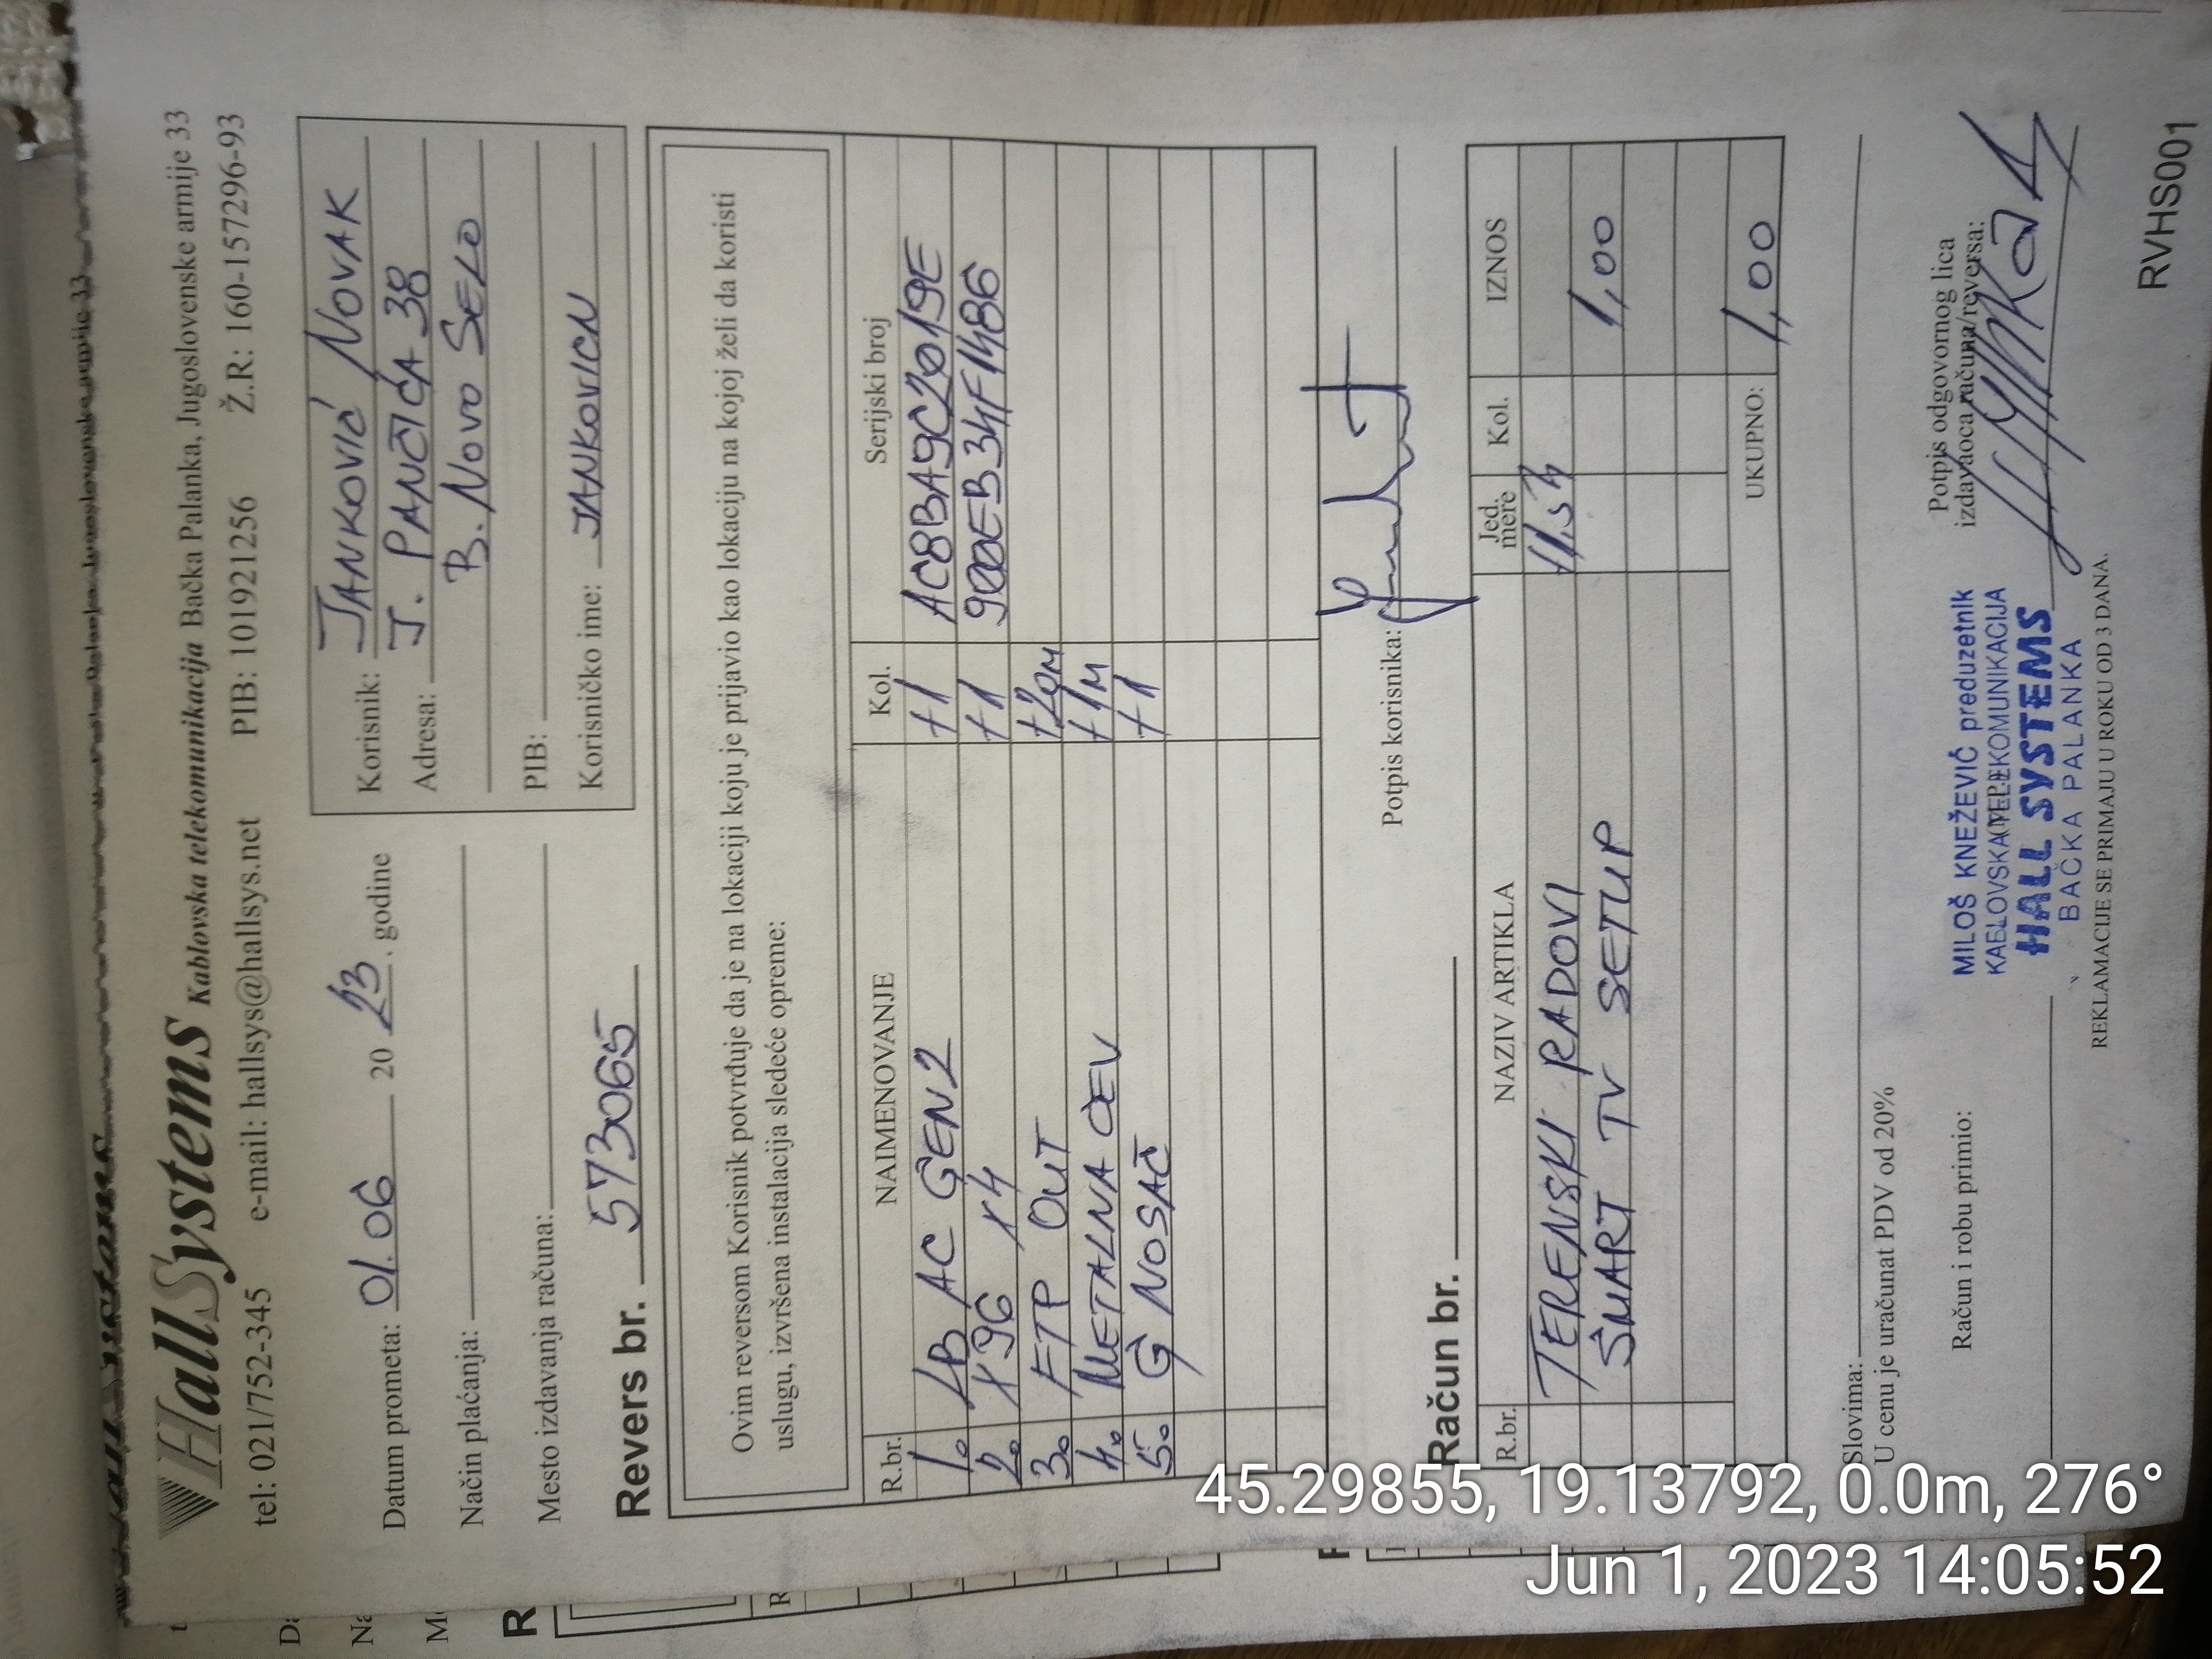 HallSystems Kablovska telekomunikacija Bačka Palanka, Jugoslovenske armije 33
tel: 021/752-345 e-mail: hallsys@hallsys.net PIB: 101921256 Ž.R: 160-157296-93
Datum prometa: 01.06 20 23. godine
Način plaćanja:
Mesto izdavanja računa:
Korisnik: JANKOVIĆ NOVAK
Adresa: J. PANČIĆA 38
B. NOVO SELO
PIB:
Korisničko ime: JANKOVICN
Revers br. 573065
Ovim reversom Korisnik potvrđuje da je na lokaciji koju je prijavio kao lokaciju na kojoj želi da koristi
uslugu, izvršena instalacija sledeće opreme:
R.br. NAIMENOVANJE Kol. Serijski broj
1. LB AC GEN2 +1 AC8BA9C2019E
2. X96 X4 +1 900EB34F1486
3. FTP OUT +20M
4. METALNA CEV +1M
5. G NOSAČ +1
Potpis korisnika:
Račun br.
R.br. NAZIV ARTIKLA Jed. mere Kol. IZNOS
TERENSKI RADOVI
SMART TV SETUP 1,00
UKUPNO: 1,00
Slovima:
U cenu je uračunat PDV od 20%
Račun i robu primio:
Potpis odgovornog lica
izdavaoca računa/reversa:
MILOŠ KNEŽEVIĆ preduzetnik
HALL SYSTEMS
BAČKA PALANKA
REKLAMACIJE SE PRIMAJU U ROKU OD 3 DANA.
RVHS001
45.29855, 19.13792, 0.0m, 276°
Jun 1, 2023 14:05:52